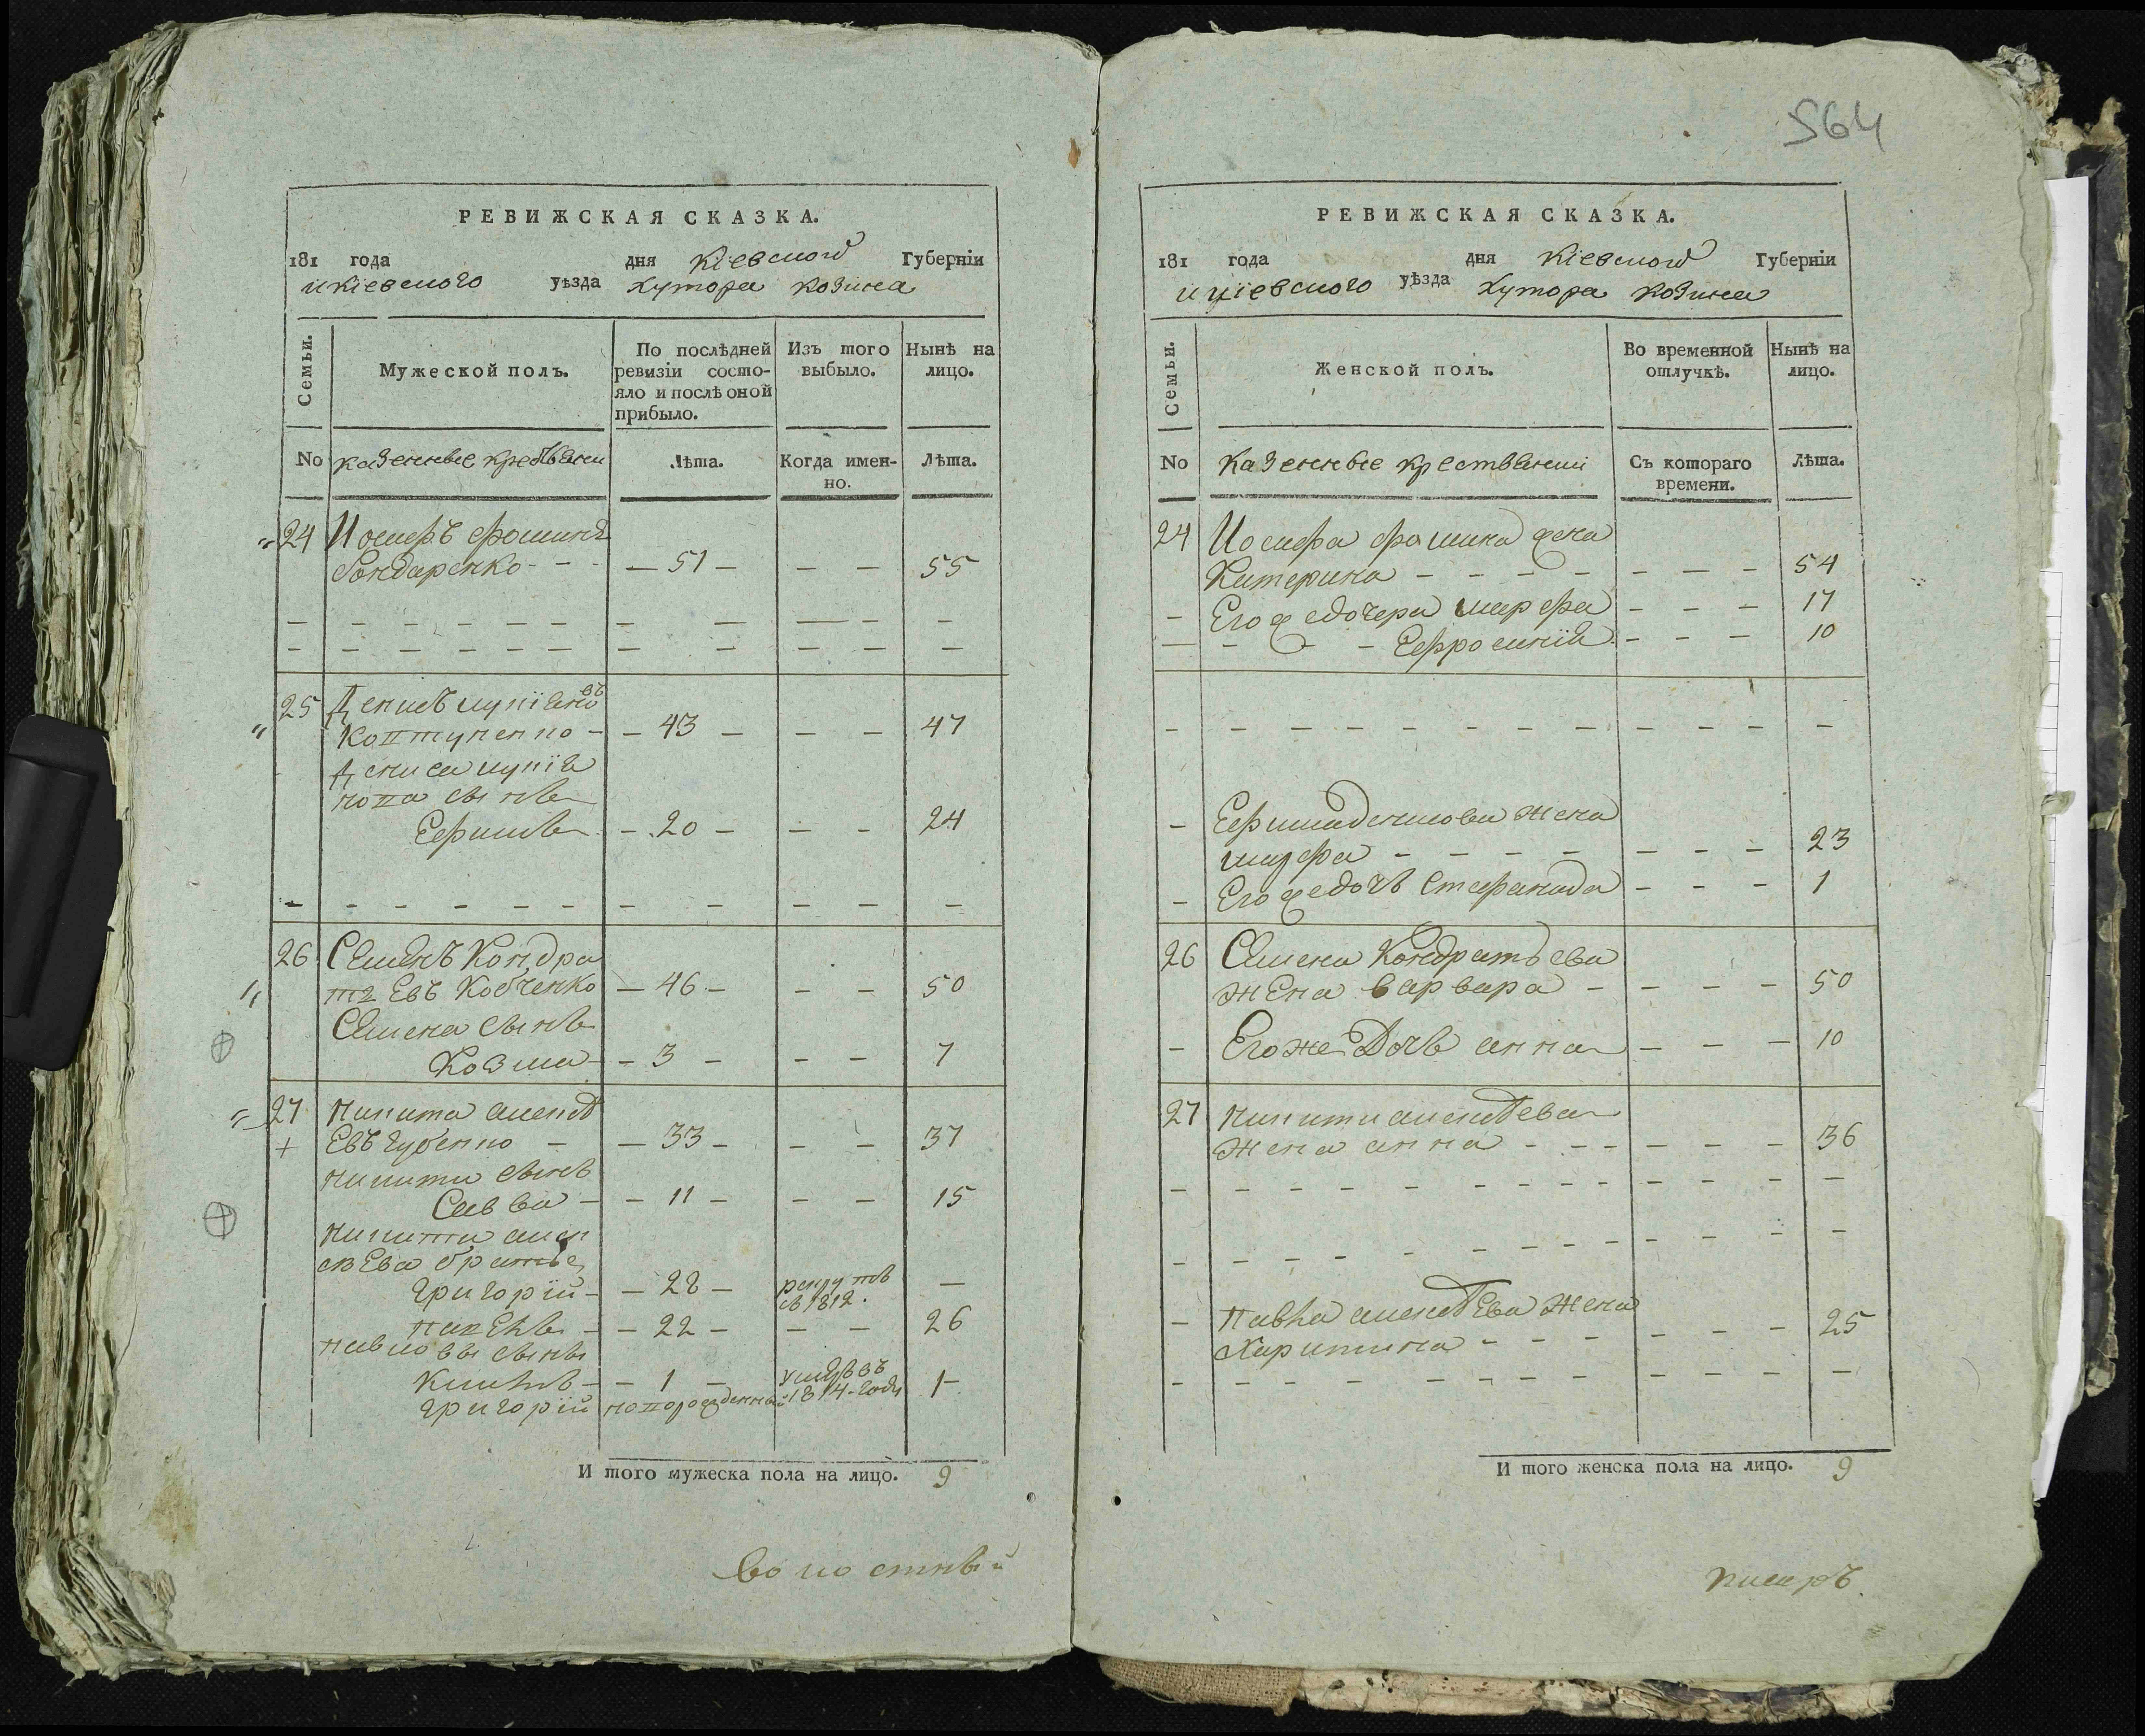 564
РЕВИЖСКАЯ СКАЗКА.
181 года дня Кіевской Губерніи
икіевского уѣзда хутора Козина
Семьи.
Мужеской полъ.
По послѣдней ревизіи состояло и послѣ оной прибыло.
Изъ того выбыло.
Нынѣ на лицо.
No казенные крестьяни
Лѣта.
Когда именно.
Лѣта.
24 Иосифъ фоминъ
Бондаренко - - - 51 - - - - 55
25 Денисъ
- 43 - - - 47
Дениса
сынъ
Ефимъ - 20 - - - 24
26 Семенъ Кондра
тьевъ Кобченко - 46 - - - 50
Семена сынъ
Козма - 3 - - - 7
27 Никита алексѣ
евъ Губенко - - 33 - - - 37
Никиты сынъ
Савва - - 11 - - - 15
Никиты алек
сѣева братья
Григорій - - 28 - рекрутъ
въ 1812. -
Павелъ - - 22 - - - 26
Павловы сыны
- 1 - умре въ
1814 годе
Григорій новорожденный 1
И того мужеска пола на лицо. 9
Волостный
РЕВИЖСКАЯ СКАЗКА.
181 года дня Кіевской Губерніи
икіевского уѣзда хутора Козина
Семьи.
Женской полъ.
Во временной отлучкѣ.
Нынѣ на лицо.
No Казенные крестьянки
Съ котораго времени.
Лѣта.
24 Иосифа фомина жена
Катерина - - - - - - - 54
- Его же дочера марфа - - - 17
- - - - Ефросинія - - - 10
- Ефима денисова жена
марфа - - - - - - - - 23
- Его же дочь Стефанида - - - 1
26 Семена Кондратьева
жена варвара - - - - - 50
- Его же Дочь анна - - - 10
27 Никиты алексѣева
жена анна - - - - - - 36
- Павла алексѣева жена
Харитина - - - - - - - 25
И того женска пола на лицо. 9
писарь.